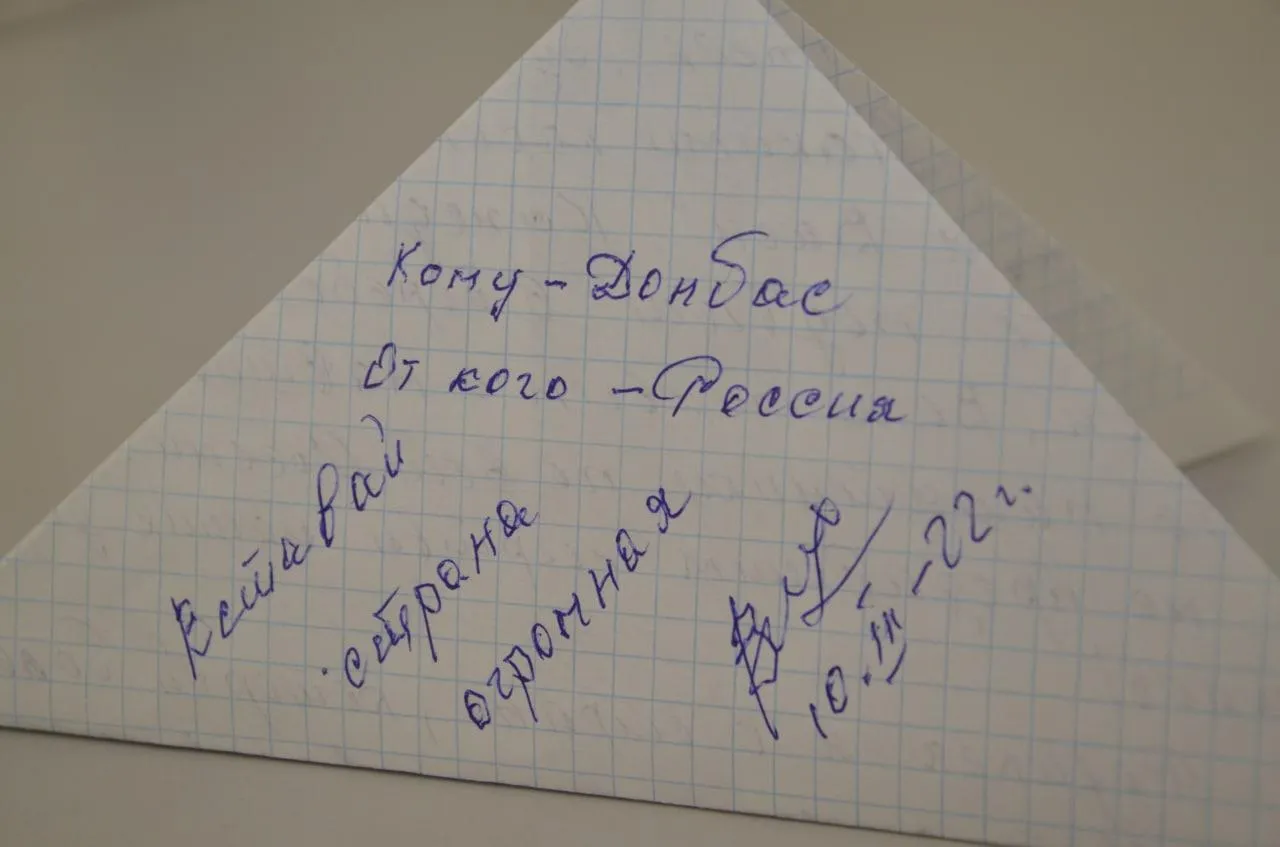 Кому - Донбас
От кого - Россия
Вставай
страна
огромная
10.III-22 г.